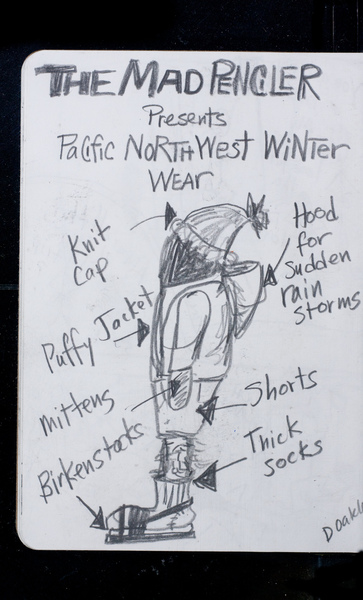 THE MAD PENCLER
Presents
Pacific NORTHWEST WiNTER
WEAR
Knit
Cap
Hood
for
Sudden
rain
storms
Puffy Jacket
mittens
Shorts
Birkenstocks
Thick
socks